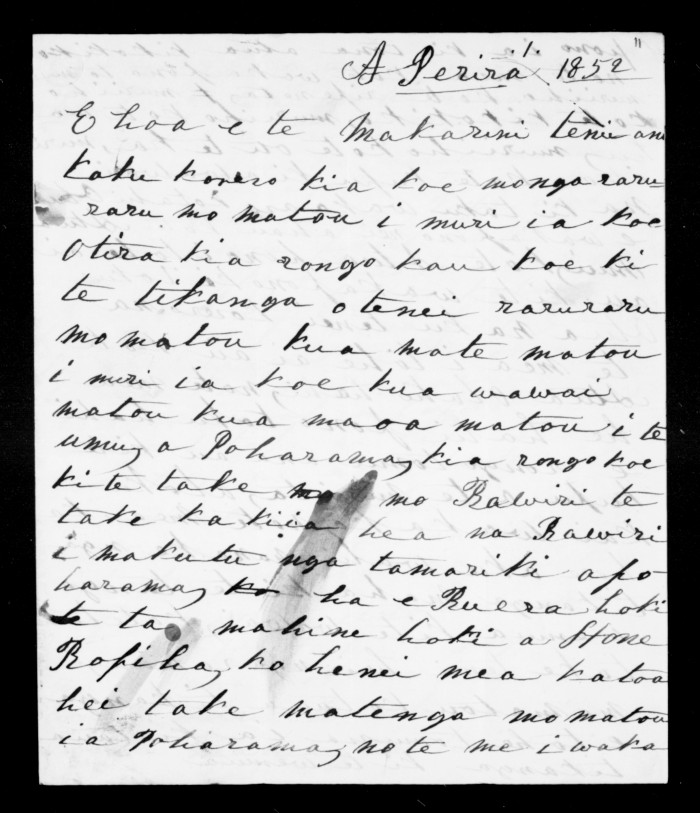 11
A Perira .1. 1852
E hoa e te Makarini tenei ano
kaku korero kia koe mo nga raru=
raru mo matou i muri ia koe
Otira kia rongo kau koe ki
te tikanga o tenei raruraru
mo matou kua mate matou
i muri ia koe kua wawai
matou kua maoa matou i te
umu, a Poharama, kia rongo koe
ki te take mo mo Rawiri te
take ka kiia he a na Rawiri
i makutu nga tamariki a po
harama, ko ha e Ruera hoki
te ta mahine hoki a Stone
Ropiha, ko henei mea katoa
hei take matenga mo matou
ia Poharama, no te me i waka